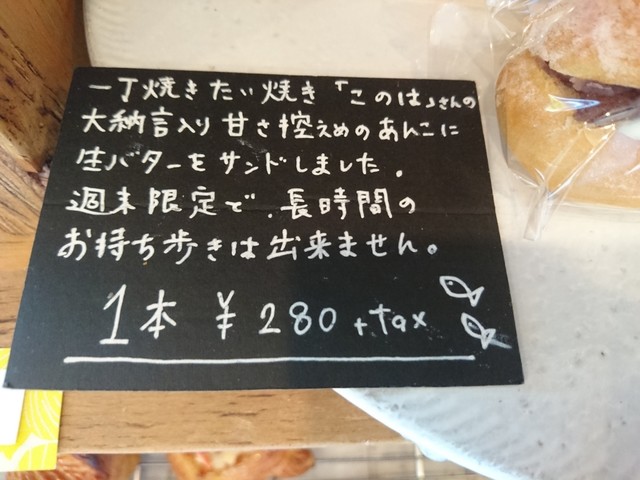 一丁焼きたい焼き「このは」さんの
大納言入り甘さ控えめのあんこに
生バターをサンドしました。
週末限定で、長時間の
お持ち歩きは出来ません。
1本 ¥280+tax